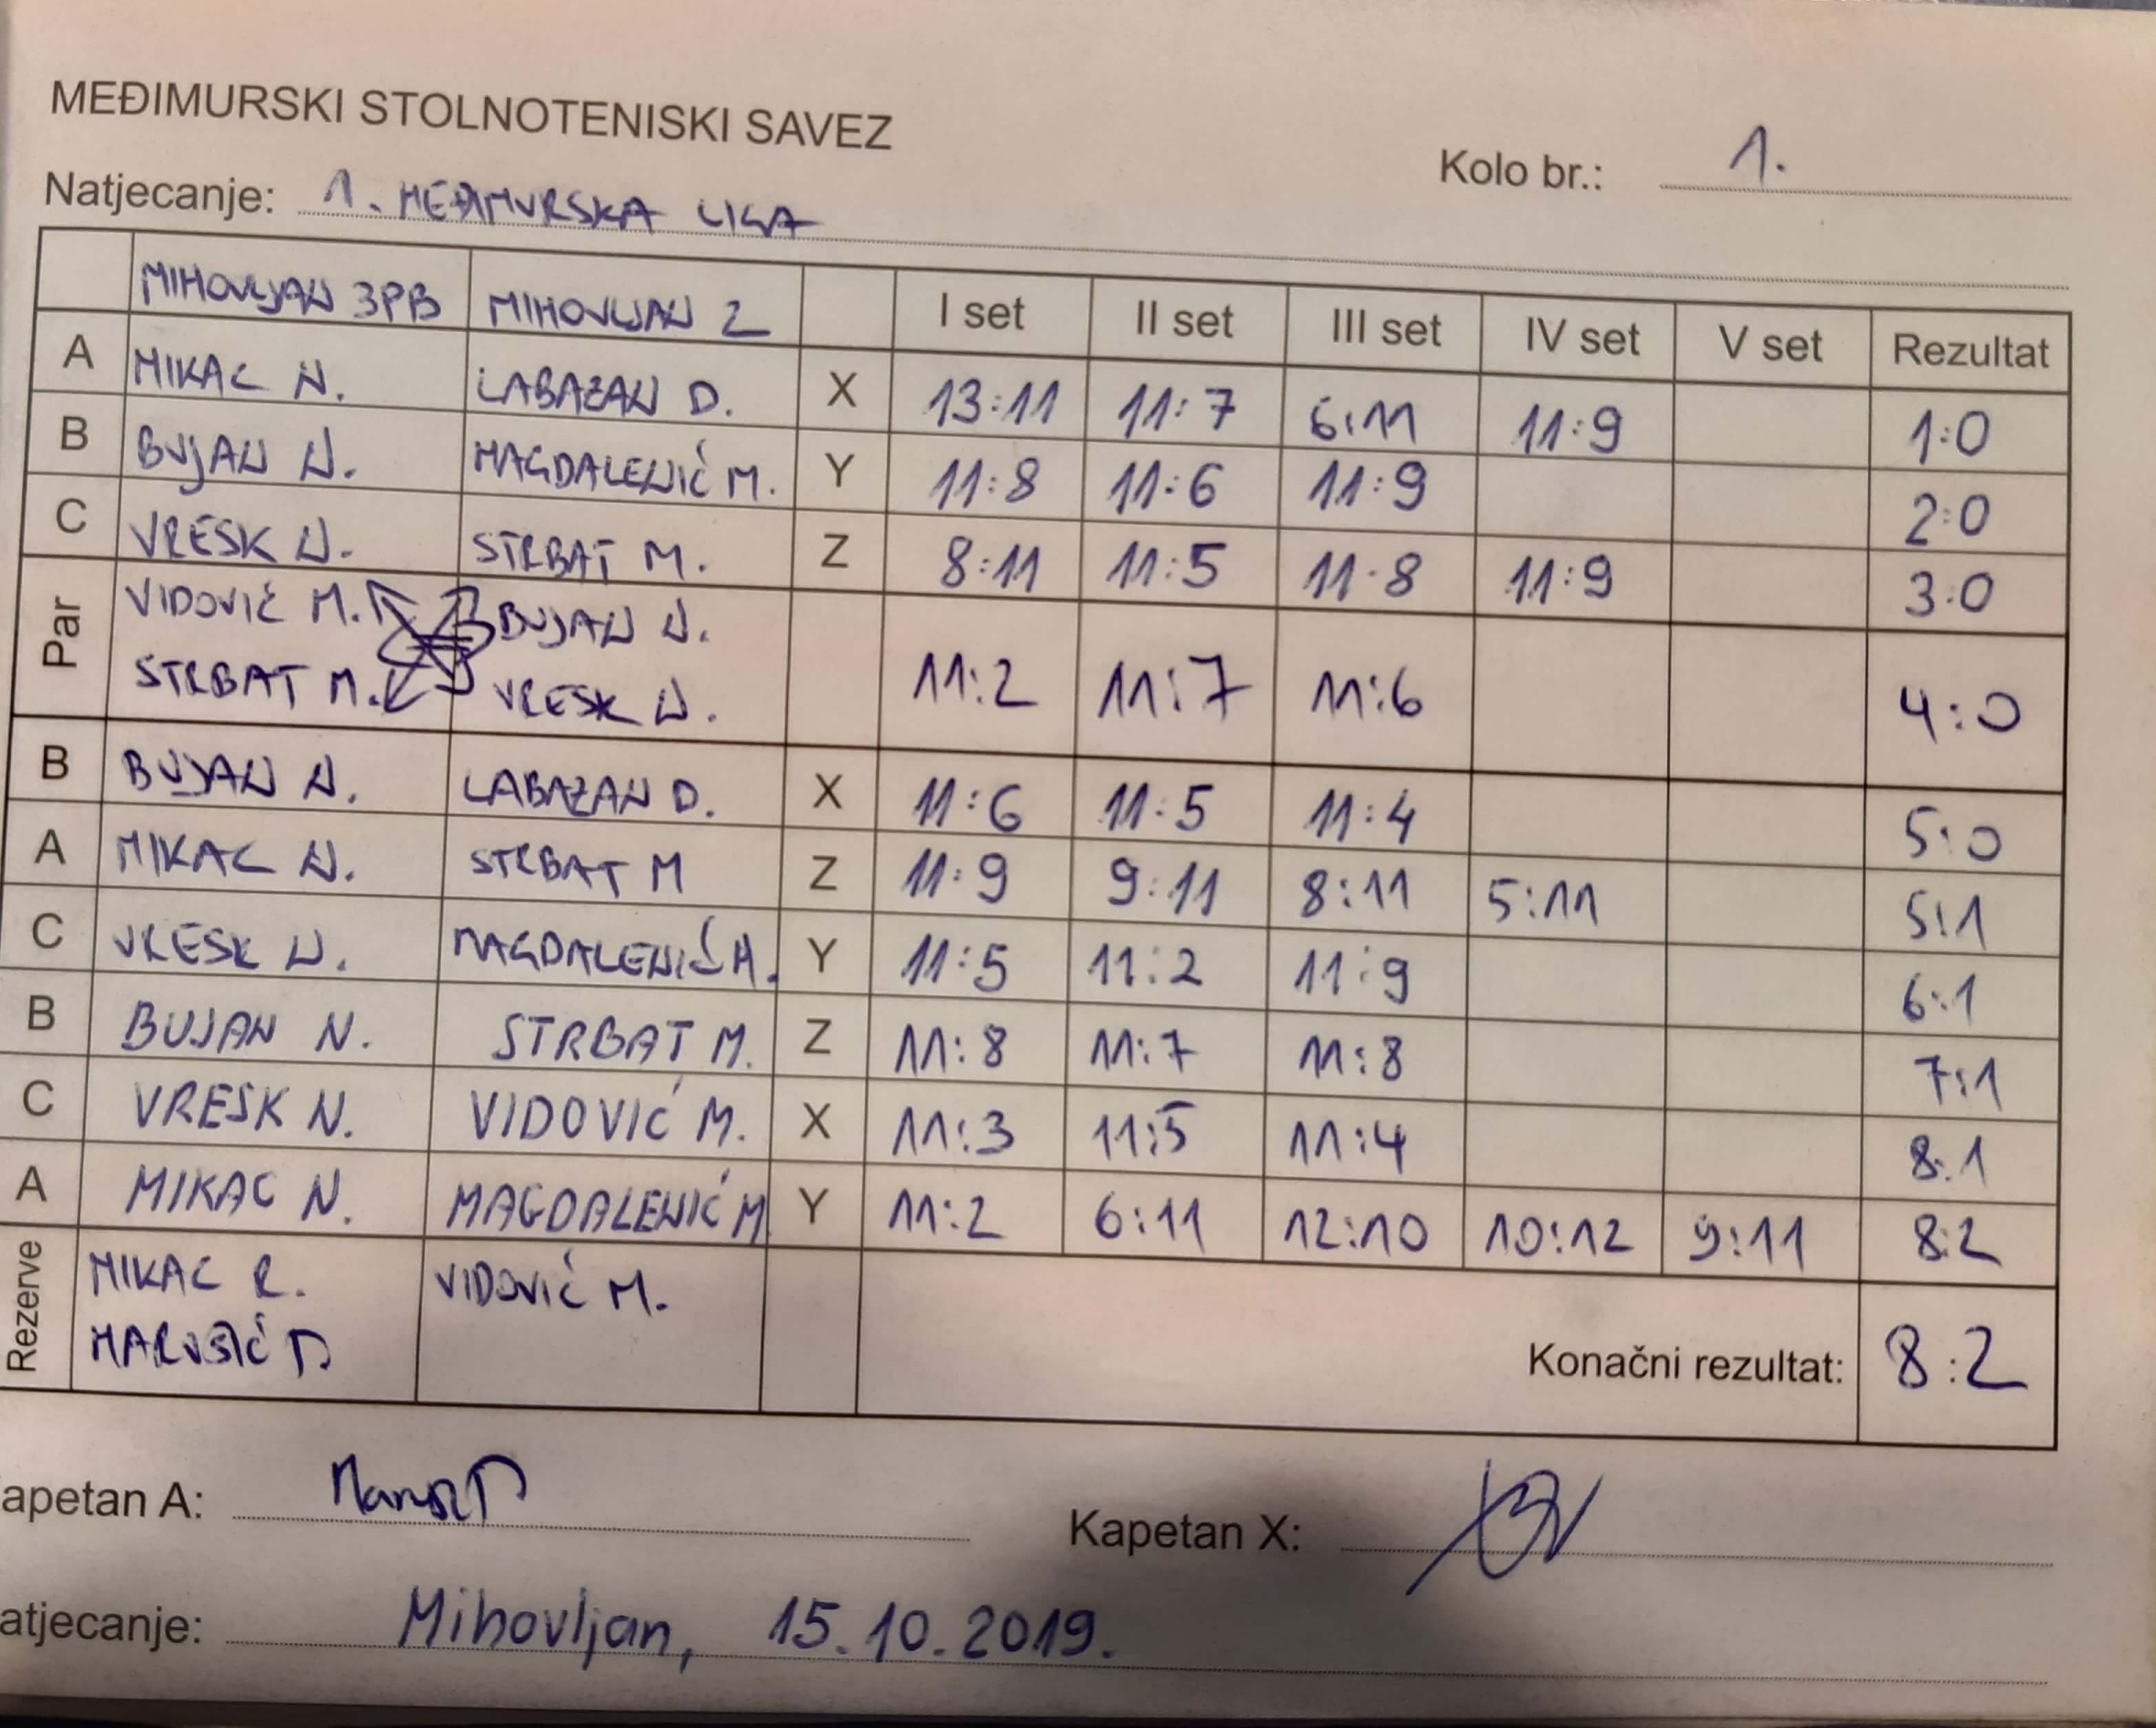 MEĐIMURSKI STOLNOTENISKI SAVEZ
Kolo br.: 1.
Natjecanje: 1. MEĐIMURSKA LIGA
MIHOVLJAN 3PB MIHOVLJAN 2 I set II set III set IV set V set Rezultat
A MIKAC N. LABAZAN D. X 13:11 11:7 6:11 11:9 1:0
B BUJAN N. MAGDALENIĆ M. Y 11:8 11:6 11:9 2:0
C VRESK N. STRBAT M. Z 8:11 11:5 11:8 11:9 3:0
Par VIDOVIĆ M. BUJAN N.
STRBAT M. VRESK N. 11:2 11:7 11:6 4:0
B BUJAN N. LABAZAN D. X 11:6 11:5 11:4 5:0
A MIKAC N. STRBAT M Z 11:9 9:11 8:11 5:11 5:1
C VRESK N. MAGDALENIĆ M. Y 11:5 11:2 11:9 6:1
B BUJAN N. STRBAT M. Z 11:8 11:7 11:8 7:1
C VRESK N. VIDOVIĆ M. X 11:3 11:5 11:4 8:1
A MIKAC N. MAGDALENIĆ M Y 11:2 6:11 12:10 10:12 9:11 8:2
Rezerve MIKAC R. VIDOVIĆ M.
MARUŠIĆ D
Konačni rezultat: 8:2
apetan A:
Kapetan X:
atjecanje: Mihovljan, 15.10.2019.